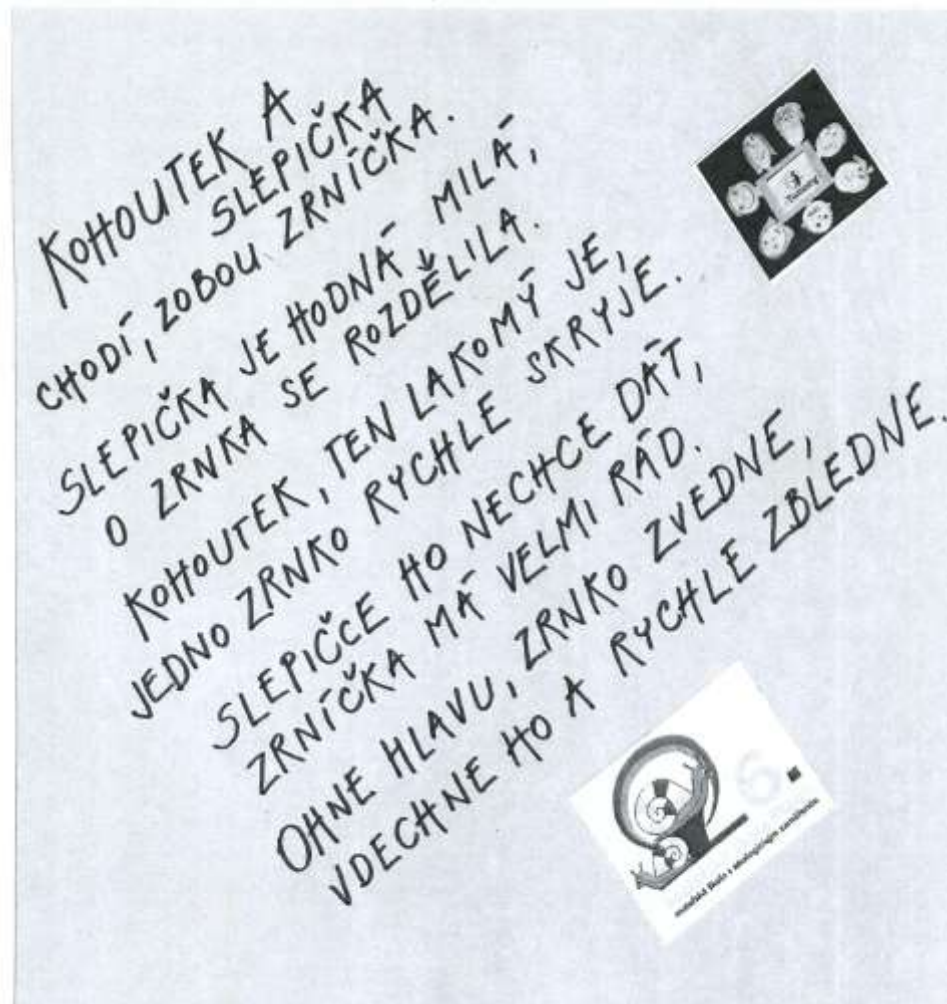 KOHOUTEK A
SLEPIČKA
CHODÍ, ZOBOU ZRNÍČKA.
SLEPIČKA JE HODNÁ MILÁ,
O ZRNKA SE ROZDĚLILA.
KOHOUTEK, TEN LAKOMÝ JE,
JEDNO ZRNKO RYCHLE SKRYJE.
SLEPIČCE HO NECHCE DÁT,
ZRNÍČKA MÁ VELMI RÁD.
OHNE HLAVU, ZRNKO ZVEDNE,
VDECHNE HO A RYCHLE ZBLEDNE.
6.
mateřská škola s ekologickým zaměřením